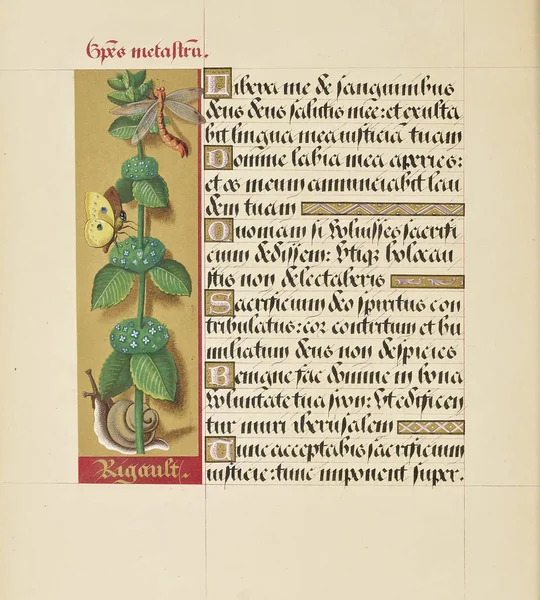 Spēs metastrū.
Libera me de sanguinibus
deus deus salutis mee: et exulta
bit lingua mea iusticiā tuam
Domine labia mea aperies:
et os meum annunciabit lau
dem tuam
Quoniam si voluisses sacrifi
cium dedissem: vtiqȝ holocau
stis non delectaberis
Sacrificium deo spiritus con
tribulatus: cor contritum et hu
miliatum deus non despicies
Benigne fac domine in bona
voluntate tua sion: vt edificen
tur muri iherusalem
Tunc acceptabis sacrificium
iusticie: tunc imponent super.
Rigault.